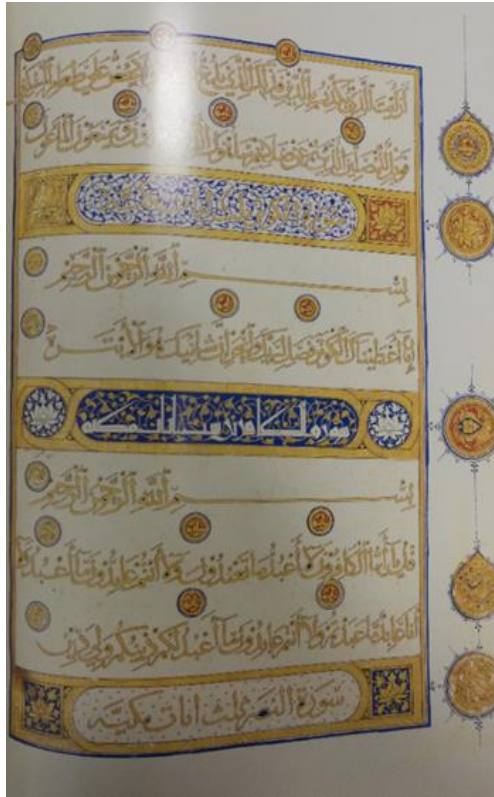 أَرَأَيْتَ الَّذِي يُكَذِّبُ بِالدِّينِ فَذَلِكَ الَّذِي يَدُعُّ يَحُضُّ عَلَى طَعَامِ الْمِسْكِينِ
فَوَيْلٌ لِلْمُصَلِّينَ الَّذِينَ هُمْ عَنْ صَلَاتِهِمْ سَاهُونَ وَيَمْنَعُونَ الْمَاعُونَ
بِسْمِ اللَّهِ الرَّحْمَنِ الرَّحِيمِ
إِنَّا أَعْطَيْنَاكَ الْكَوْثَرَ فَصَلِّ لِرَبِّكَ وَانْحَرْ إِنَّ شَانِئَكَ هُوَ الْأَبْتَرُ
سورة الكافرون ست ايات مكية
بِسْمِ اللَّهِ الرَّحْمَنِ الرَّحِيمِ
قُلْ يَا أَيُّهَا الْكَافِرُونَ لَا أَعْبُدُ مَا تَعْبُدُونَ وَلَا أَنْتُمْ عَابِدُونَ مَا أَعْبُدُ وَلَا
أَنَا عَابِدٌ مَا عَبَدْتُمْ وَلَا أَنْتُمْ عَابِدُونَ مَا أَعْبُدُ لَكُمْ دِينُكُمْ وَلِيَ دِينِ
سورة النصر ثلث ايات مكيه